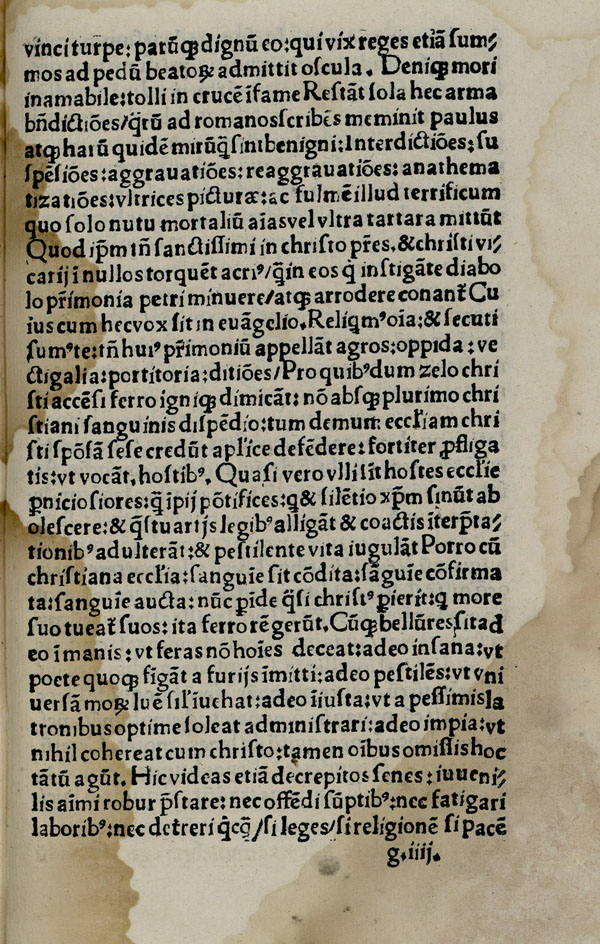 vinci turpe: patūq̃ dignū eo: qui vix reges etiā sum⸗
mos ad pedū beatoꝝ admittit oscula. Deniqꝫ mori
inamabile: tolli in crucē īfame Restāt sola hec arma
bn̄dictiōes/q̃rū ad romanos scribēs meminit paulus
atqꝫ harū quidē mirū q̃ sint benigni: Interdictiōes: su
spēsiōes: aggrauatiōes: reaggrauatiōes: anathema
tizatiōes: vltrices picturæ: ac fulmē illud terrificum
quo solo nutu mortaliū aīas vel vltra tartara mittūt
Quod ip̄m tn̄ sanctissimi in christo p̄res. & christi vi⸗
carij ī nullos torquēt acriꝰ/q̃ in eos q̇ instigāte diabo
lo pr̄imonia petri minuere/atqꝫ arrodere conant᷑ Cu
ius cum hec vox sit in euāgelio. Reliqmꝰ oīa: & secuti
sumꝰ te: tn̄ huiꝰ pr̄imoniū appellāt agros: oppida: ve
ctigalia: portitoria: ditiōes/Pro quibꝰdum zelo chri
sti accēsi ferro igniqꝫ dimicāt: nō absqꝫ plurimo chri
stiani sanguinis dispēdio: tum demum eccl̄iam chri
sti spōsā sese credūt apl'ice defēdere: fortiter ꝓfliga
tis: vt vocāt, hostibꝰ. Quasi vero vlli sīt hostes eccl̄ie
ꝑniciosiores: q̃ īpij pōtifices: q & silētio xp̄m sinūt ab
olescere: & q̃stuarijs legibꝰ alligāt & coactis īterp̄ta⸗
tionibꝰ adulterāt: & pestilente vita iugulāt Porro cū
christiana eccl̄ia: sanguīe sit cōdita: sāguīe cōfirma
ta: sanguīe aucta: nūc ꝑīde q̃si christꝰ ꝑierit: q more
suo tueat᷑ suos: ita ferro rē gerūt. Cūqꝫ bellū res sit ad
eo īmanis: vt feras nō hoīes deceat: adeo insana: vt
poete quoqꝫ fīgāt a furijs īmitti: adeo pestilēs: vt vni
uersā moꝝ luē sil' īuehat: adeo īiusta: vt a pessimis la
tronibus optime soleat administrari: adeo impia: vt
nihil cohereat cum christo: tamen oībus omissis hoc
tātū agūt. Hic videas etiā decrepitos senes: iuueni⸗
lis aīmi robur p̄stare: nec offēdi sūptibꝰ: nec fatigari
laboribꝰ: nec deterreri q̇cq̃/si leges/si religionē si pacē
g.iiij.